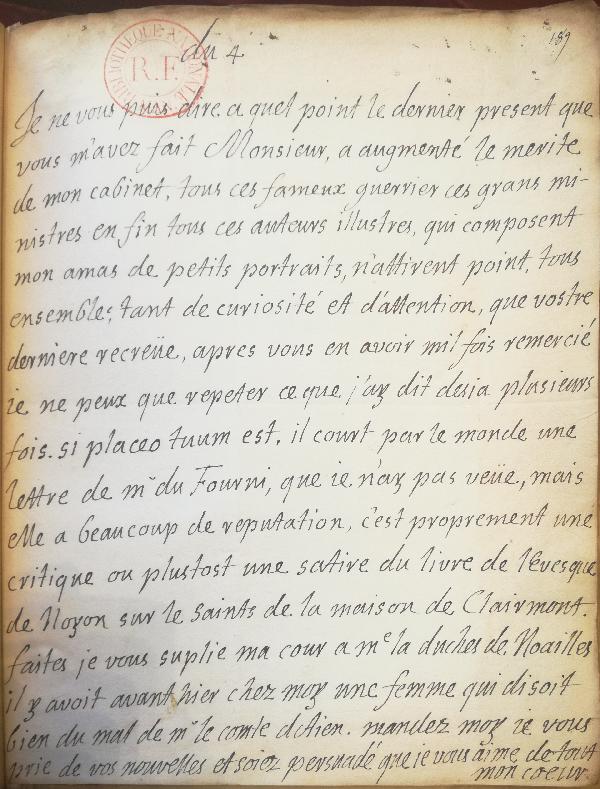 du 4
189
BIBLIOTHEQUE NATIONALE
R.F.
Je ne vous puis dire a quel point le dernier present que
vous m'avez fait Monsieur, a augmenté le merite
de mon cabinet, tous ces fameux guerrier ces grans mi-
nistres en fin tous ces auteurs illustres, qui composent
mon amas de petits portraits, n'attirent point, tous
ensembles, tant de curiosité et d'attention, que vostre
derniere recreüe, apres vous en avoir mil fois remercié
ie ne peux que repeter ce que j'ay dit desia plusieurs
fois. si placeo tuum est. il court par le monde une
lettre de mr du Fourni, que ie n'ay pas veüe, mais
elle a beaucoup de reputation, c'est proprement une
critique ou plustost une satire du livre de l'Evesque
de Noyon sur le saints de la maison de Clairmont.
faites je vous suplie ma cour a me la duches de Noailles
il y avoit avant hier chez moy une femme qui disoit
bien du mal de mr le comte mandez moy ie vous
prie de vos nouvelles et soiez persuadé que je vous aime de tout
mon coeur.